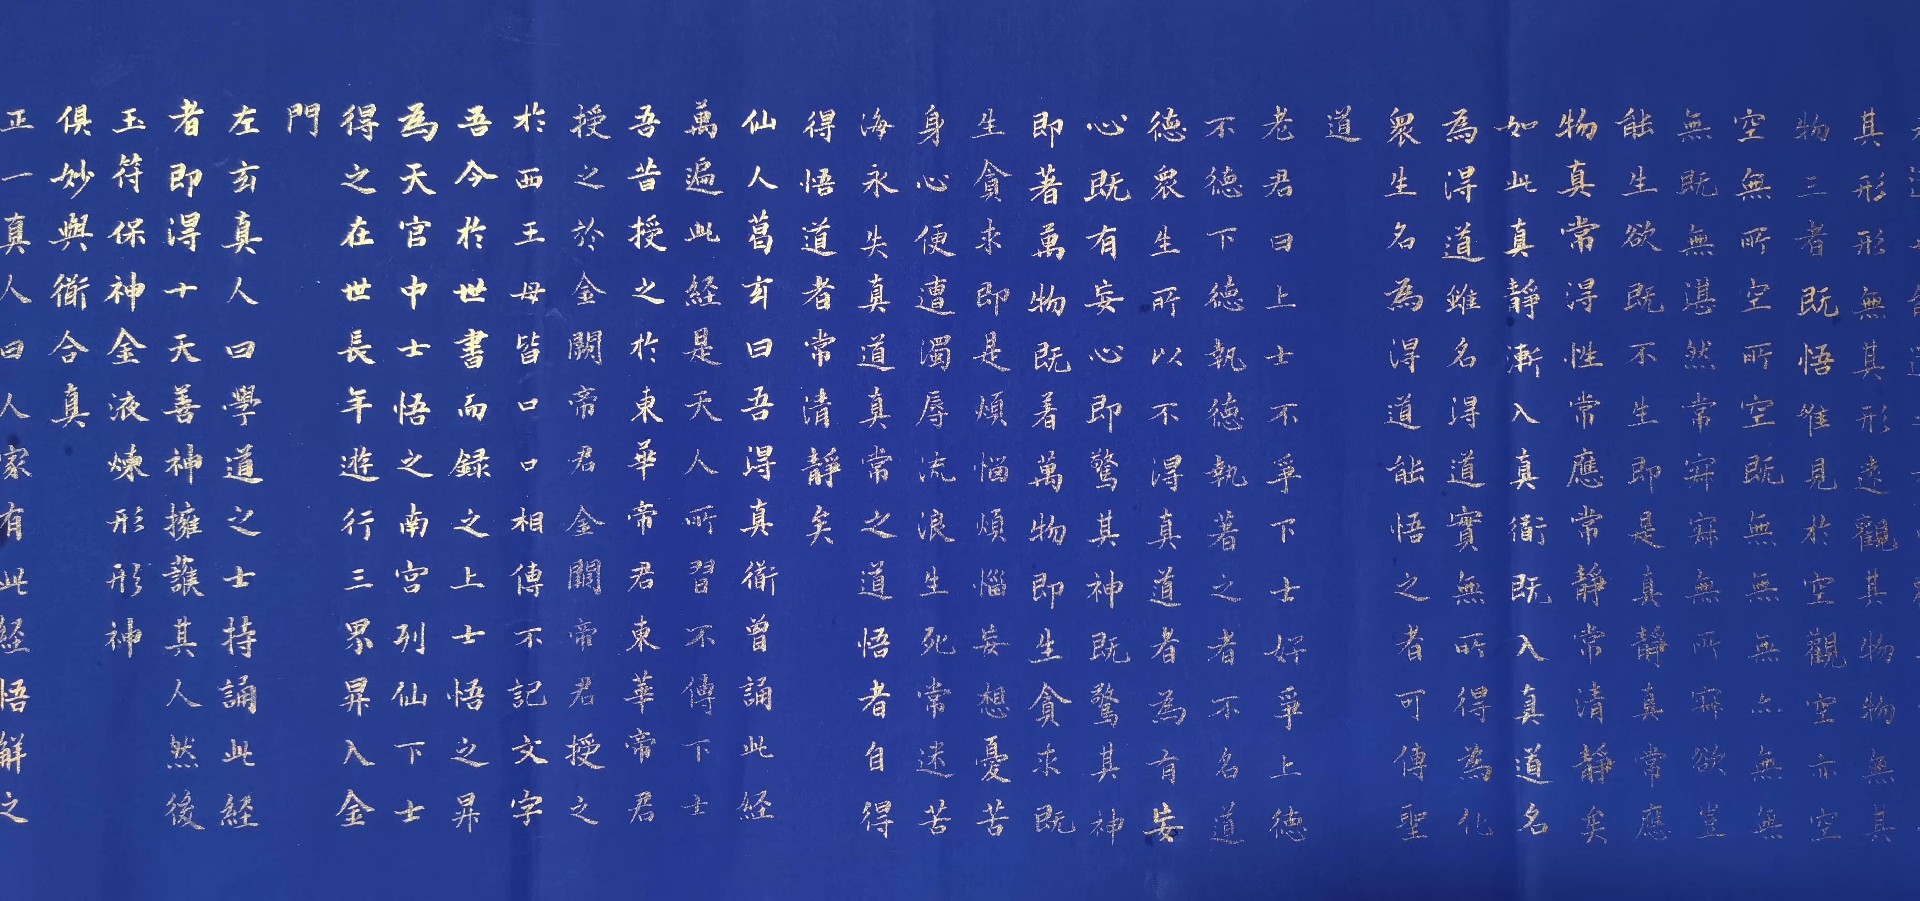 其形形無其形遠觀其物物無其
物三者既悟惟見於空觀空亦空
空無所空所空既無無無亦無無
無既無湛然常寂寂無所寂欲豈
能生欲既不生即是真靜真常應
物真常得性常應常靜常清靜矣
如此真靜漸入真衜既入真道名
為得道雖名得道實無所得為化
衆生名為得道能悟之者可傳聖
道
老君曰上士不爭下士好爭上德
不德下德執德執著之者不名道
德衆生所以不得真道者為有妄
心既有妄心即驚其神既驚其神
即著萬物既著萬物即生貪求既
生貪求即是煩惱煩惱妄想憂苦
身心便遭濁辱流浪生死常迷苦
海永失真道真常之道悟者自得
得悟道者常清靜矣
仙人葛玄曰吾得真衜曾誦此経
萬遍此経是天人所習不傳下士
吾昔授之於東華帝君東華帝君
授之於金闕帝君金闕帝君授之
於西王母皆口口相傳不記文字
吾今於世書而録之上士悟之昇
為天官中士悟之南宮列仙下士
得之在世長年遊行三界昇入金
門
左玄真人曰學道之士持誦此経
者即得十天善神擁護其人然後
玉符保神金液煉形形神
俱妙與衜合真
正一真人曰人家有此経悟解之